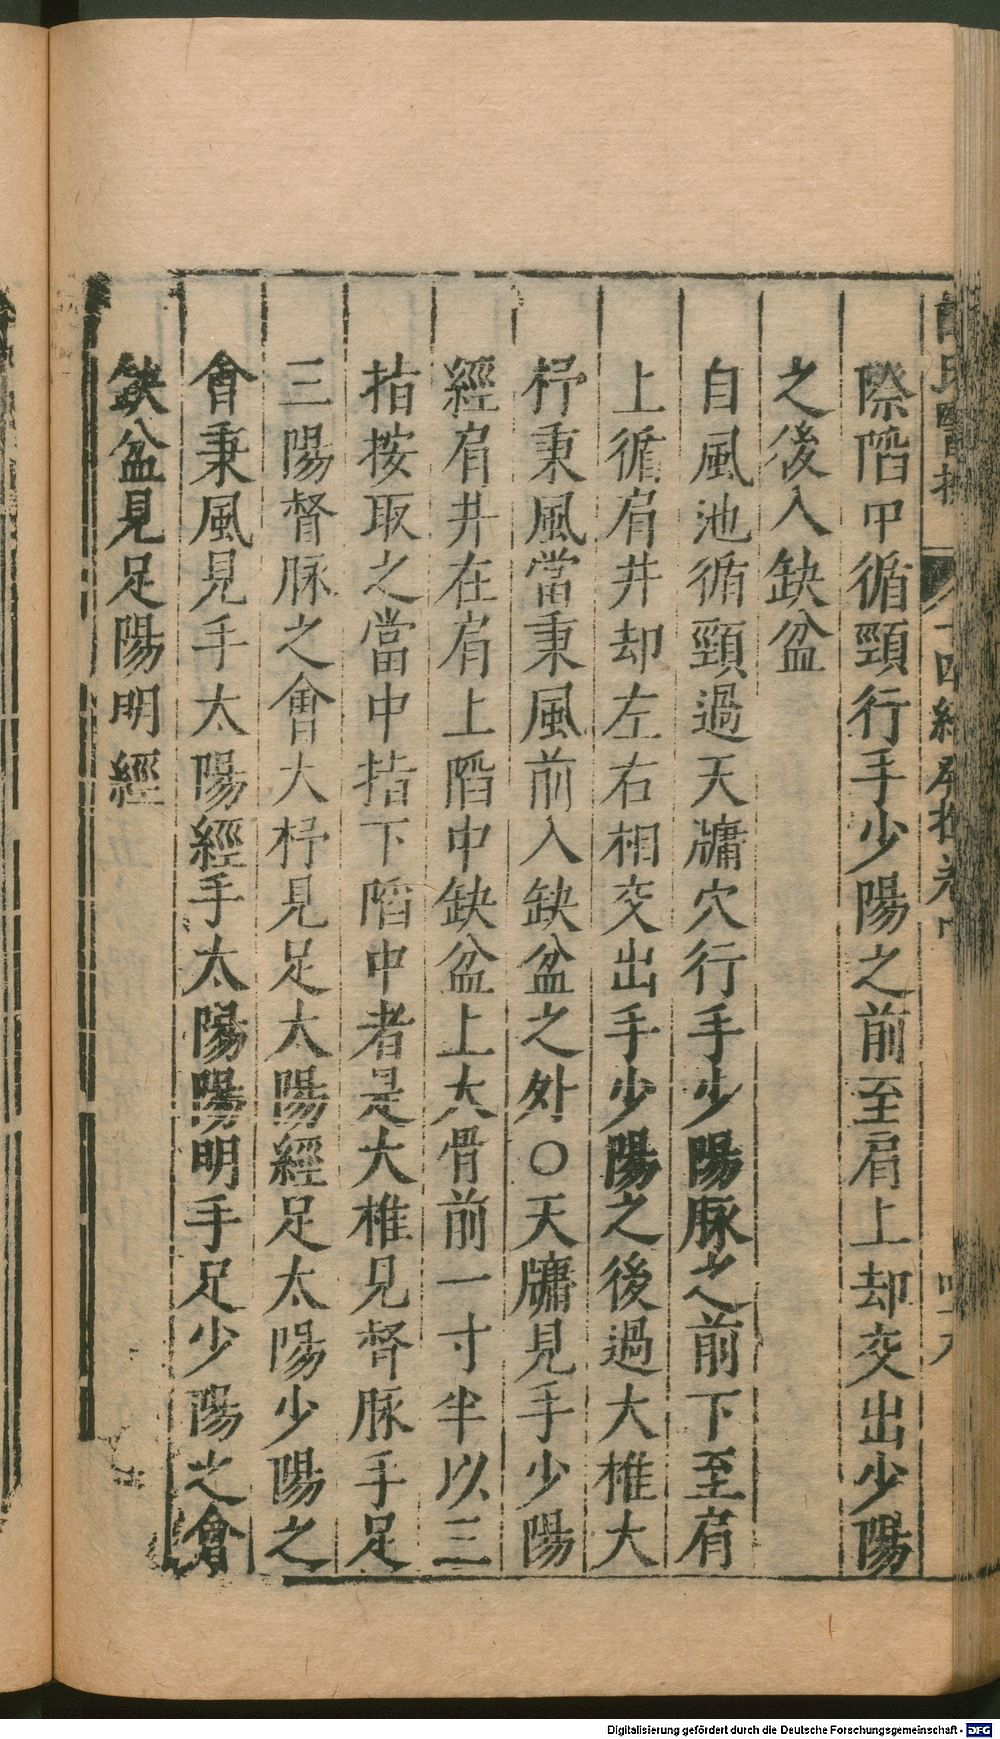 際陷中循頸行手少陽之前至肩上却交出少陽
之後入缺盆
自風池循頸過天牖穴行手少陽脉之前下至肩
上循肩井却左右相交出手少陽之後過大椎大
杼秉風當秉風前入缺盆之外○天牖見手少陽
經肩井在肩上陷中缺盆上大骨前一寸半以三
指按取之當中指下陷中者是大椎見督脉手足
三陽督脉之會大杼見足太陽經足太陽少陽之
會秉風見手太陽經手太陽陽明手足少陽之會
缺盆見足陽明經
Digitalisierung gefördert durch die Deutsche Forschungsgemeinschaft - DFG